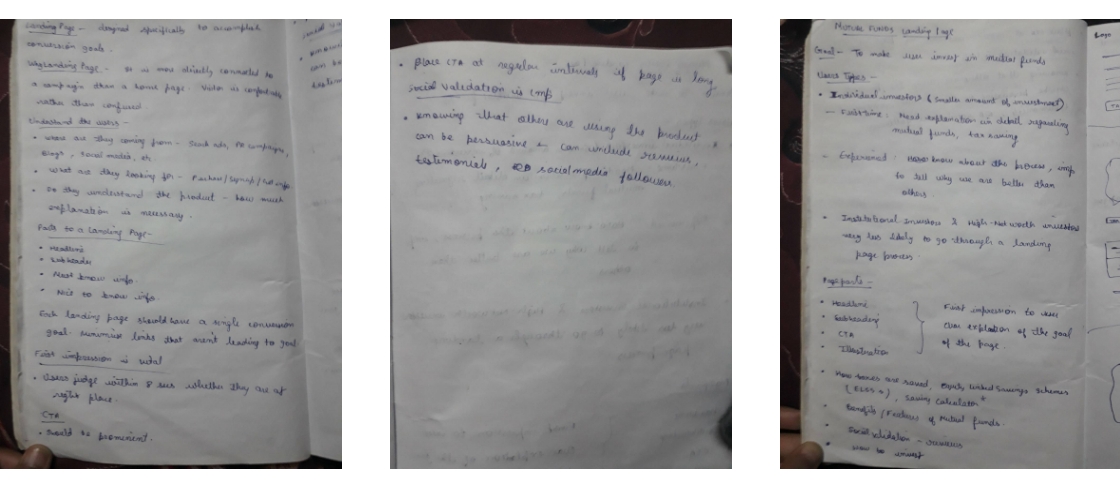 Landing Page - designed specifically to accomplish
conversion goals.
Why Landing Page - It is more directly connected to
a campaign than a home page. Visitor is comfortable
rather than confused.
Understand the users -
• Where are they coming from - Search ads, PR campaigns,
Blogs, social media, etc
• What are they looking for - Purchase/Signup/
• Do they understand the product - how much
explanation is necessary.
Parts to a Landing Page -
• Headline
• Subheader
• Must know info.
• Nice to know info.
Each landing page should have a single conversion
goal. minimise links that aren't leading to goal
First impression is vital
• Users judge within 8 secs whether they are at
right place.
CTA
• Should be prominent.
• Place CTA at regular intervals if page is long
Social validation is imp
• Knowing that others are using the product
can be persuasive can include reviews,
testimonials, social media followers
Mutual Funds Landing Page
Goal - To make user invest in mutual funds
Users Types -
• Individual investors (smaller amount of investment)
- First time: Need explanation in detail regarding
mutual funds, tax saving
- Experienced: know about the process, imp
to tell why we are better than
others.
• Institutional investors & High-Net worth investors
very less likely to go through a landing
page process.
Page parts -
• Headline
• Subheading
• CTA
• Illustration
First impression to user
clear explation of the goal
of the page.
• How taxes are saved, Equity linked savings schemes
(ELSS), saving calculator*
• Benefits / Features of Mutual funds.
• Social validation - reviews
• How to invest
Logo